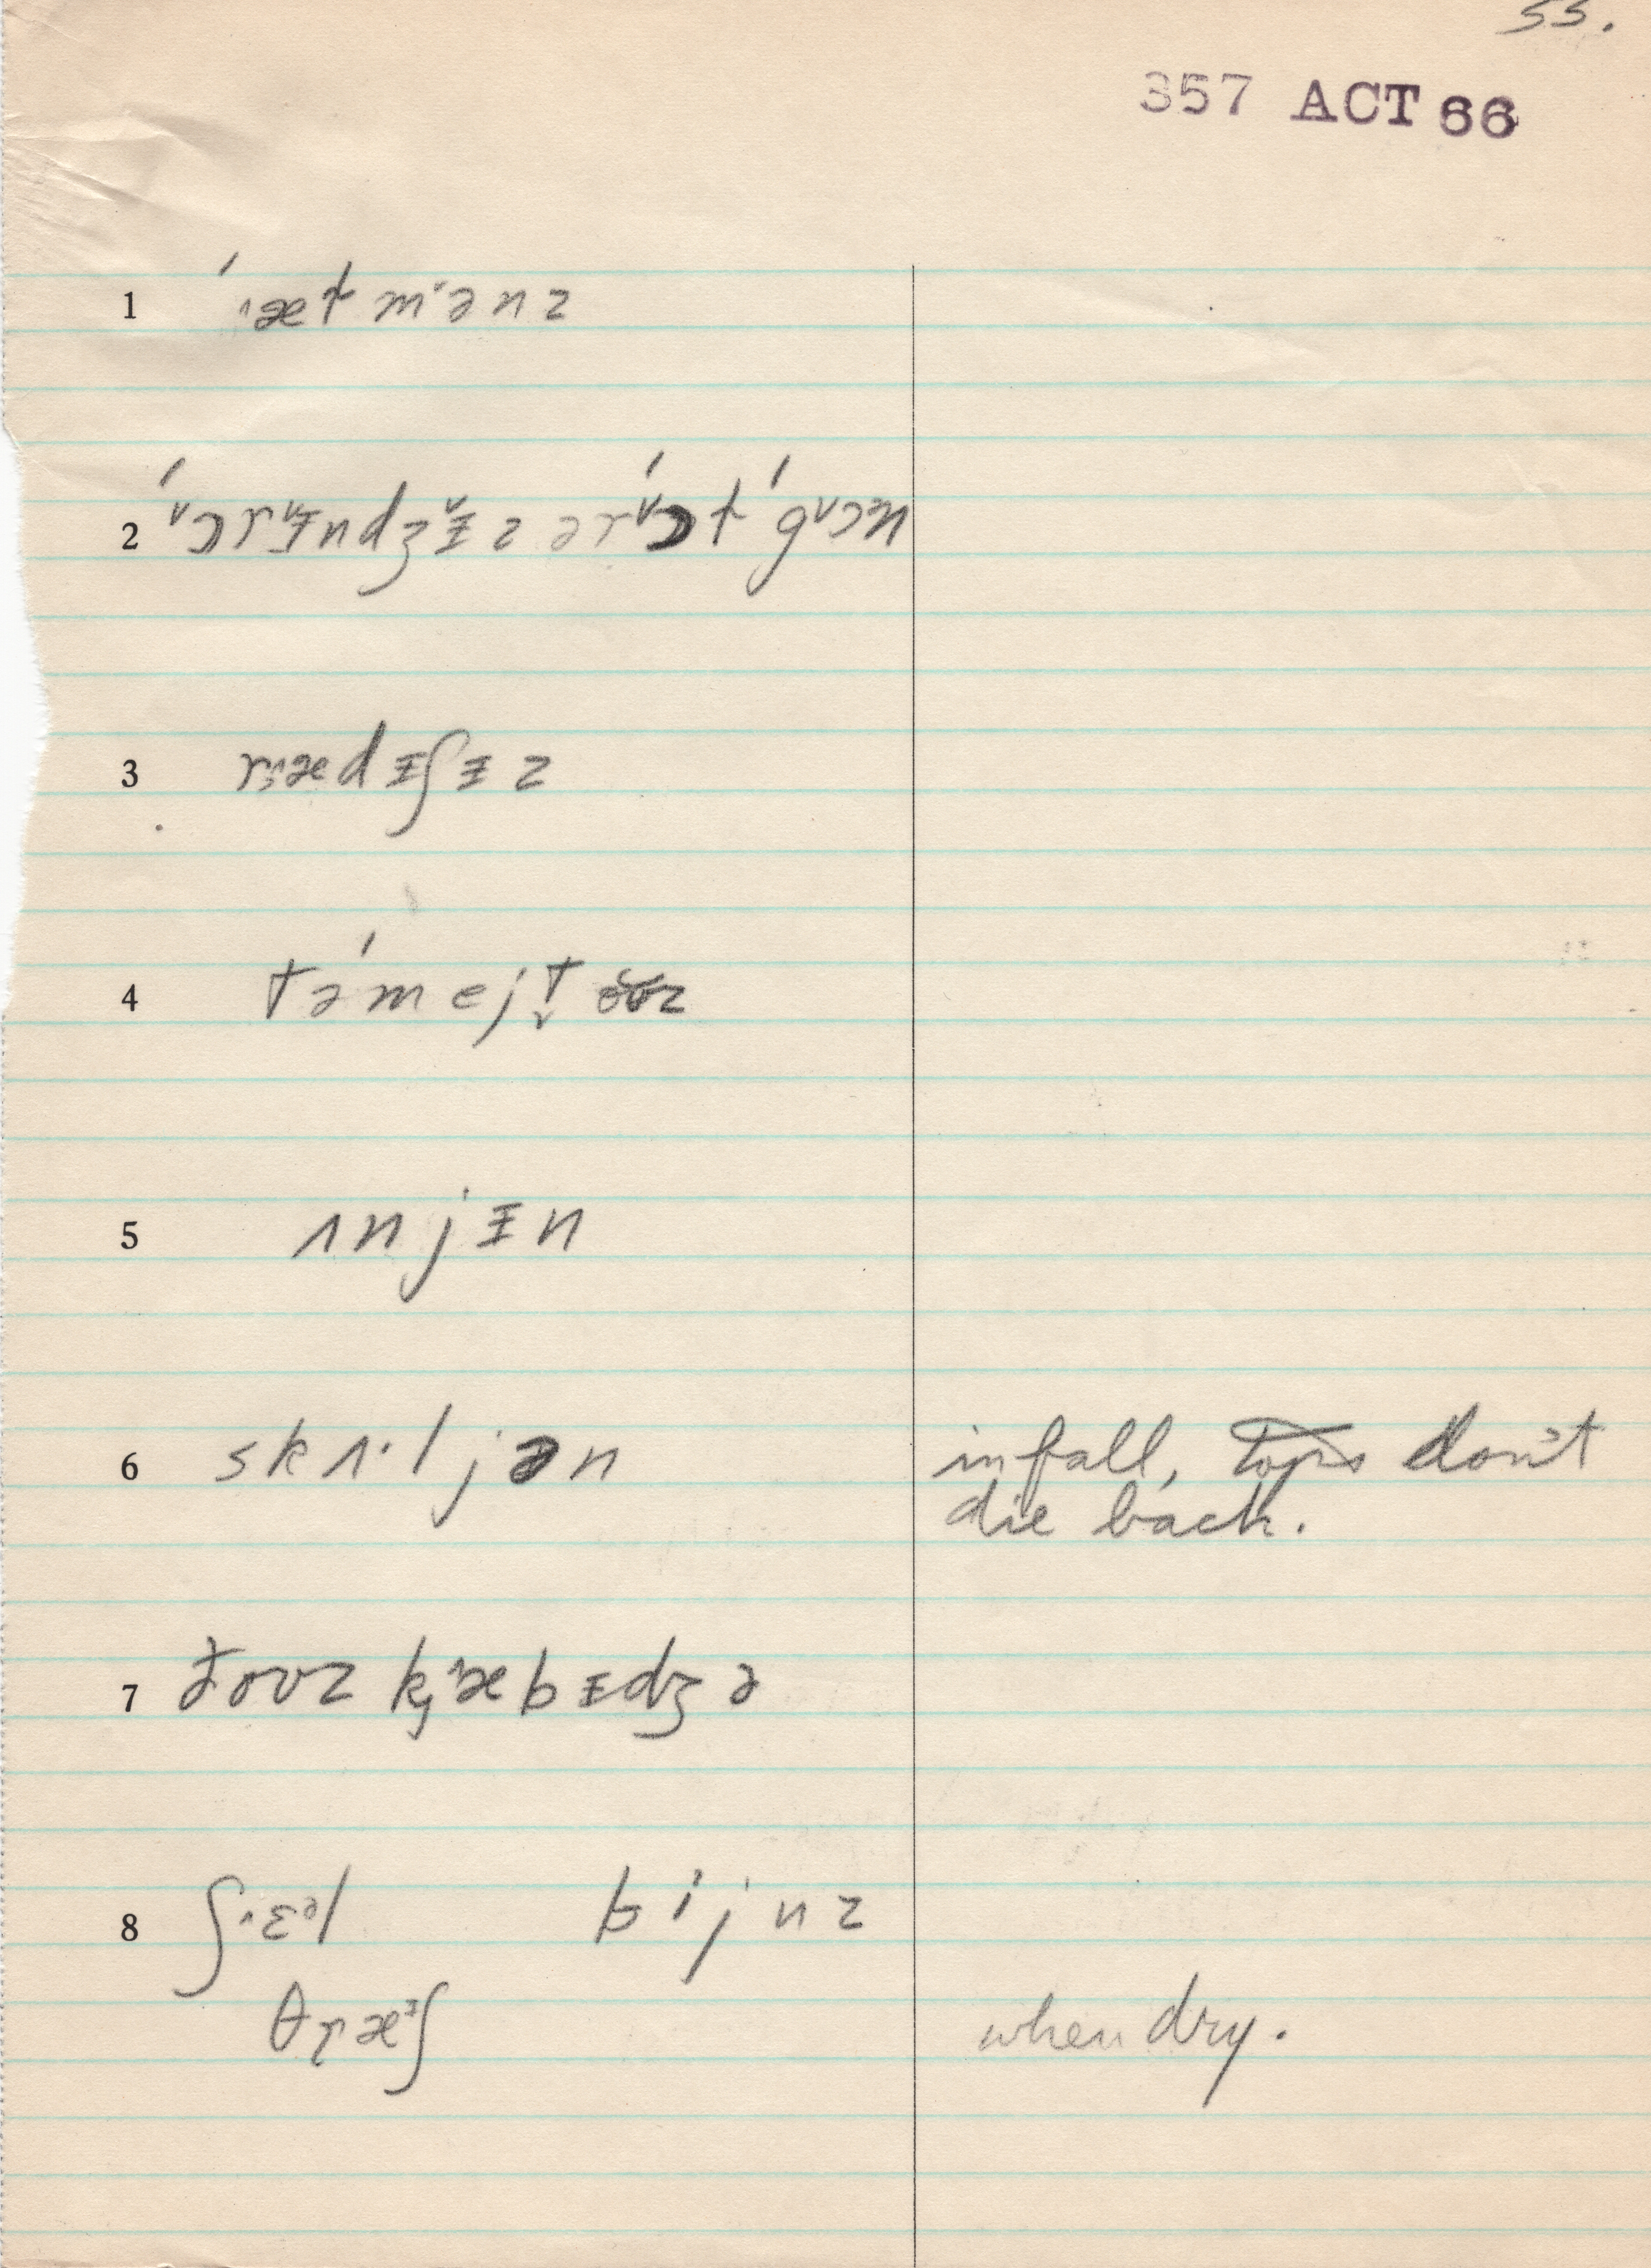 55.
357 ACT 66
1 ˈæ˄tm˙ənz
2 ˈɔ˅rɨ˅ndʒɨ˅z ərˈɔ˅t ˈgɔ˅ɜn
3 ræ˄dɨʃɨz
4 təˈmejt̬ɵʊz
5 ʌnjɨn
6 skʌ·ljən
in fall, tops don't
die back.
7 ðouz kæ˄bɨdʒə
8 ʃɛ˄ᵊl bijnz
θræᶤʃ
when dry.